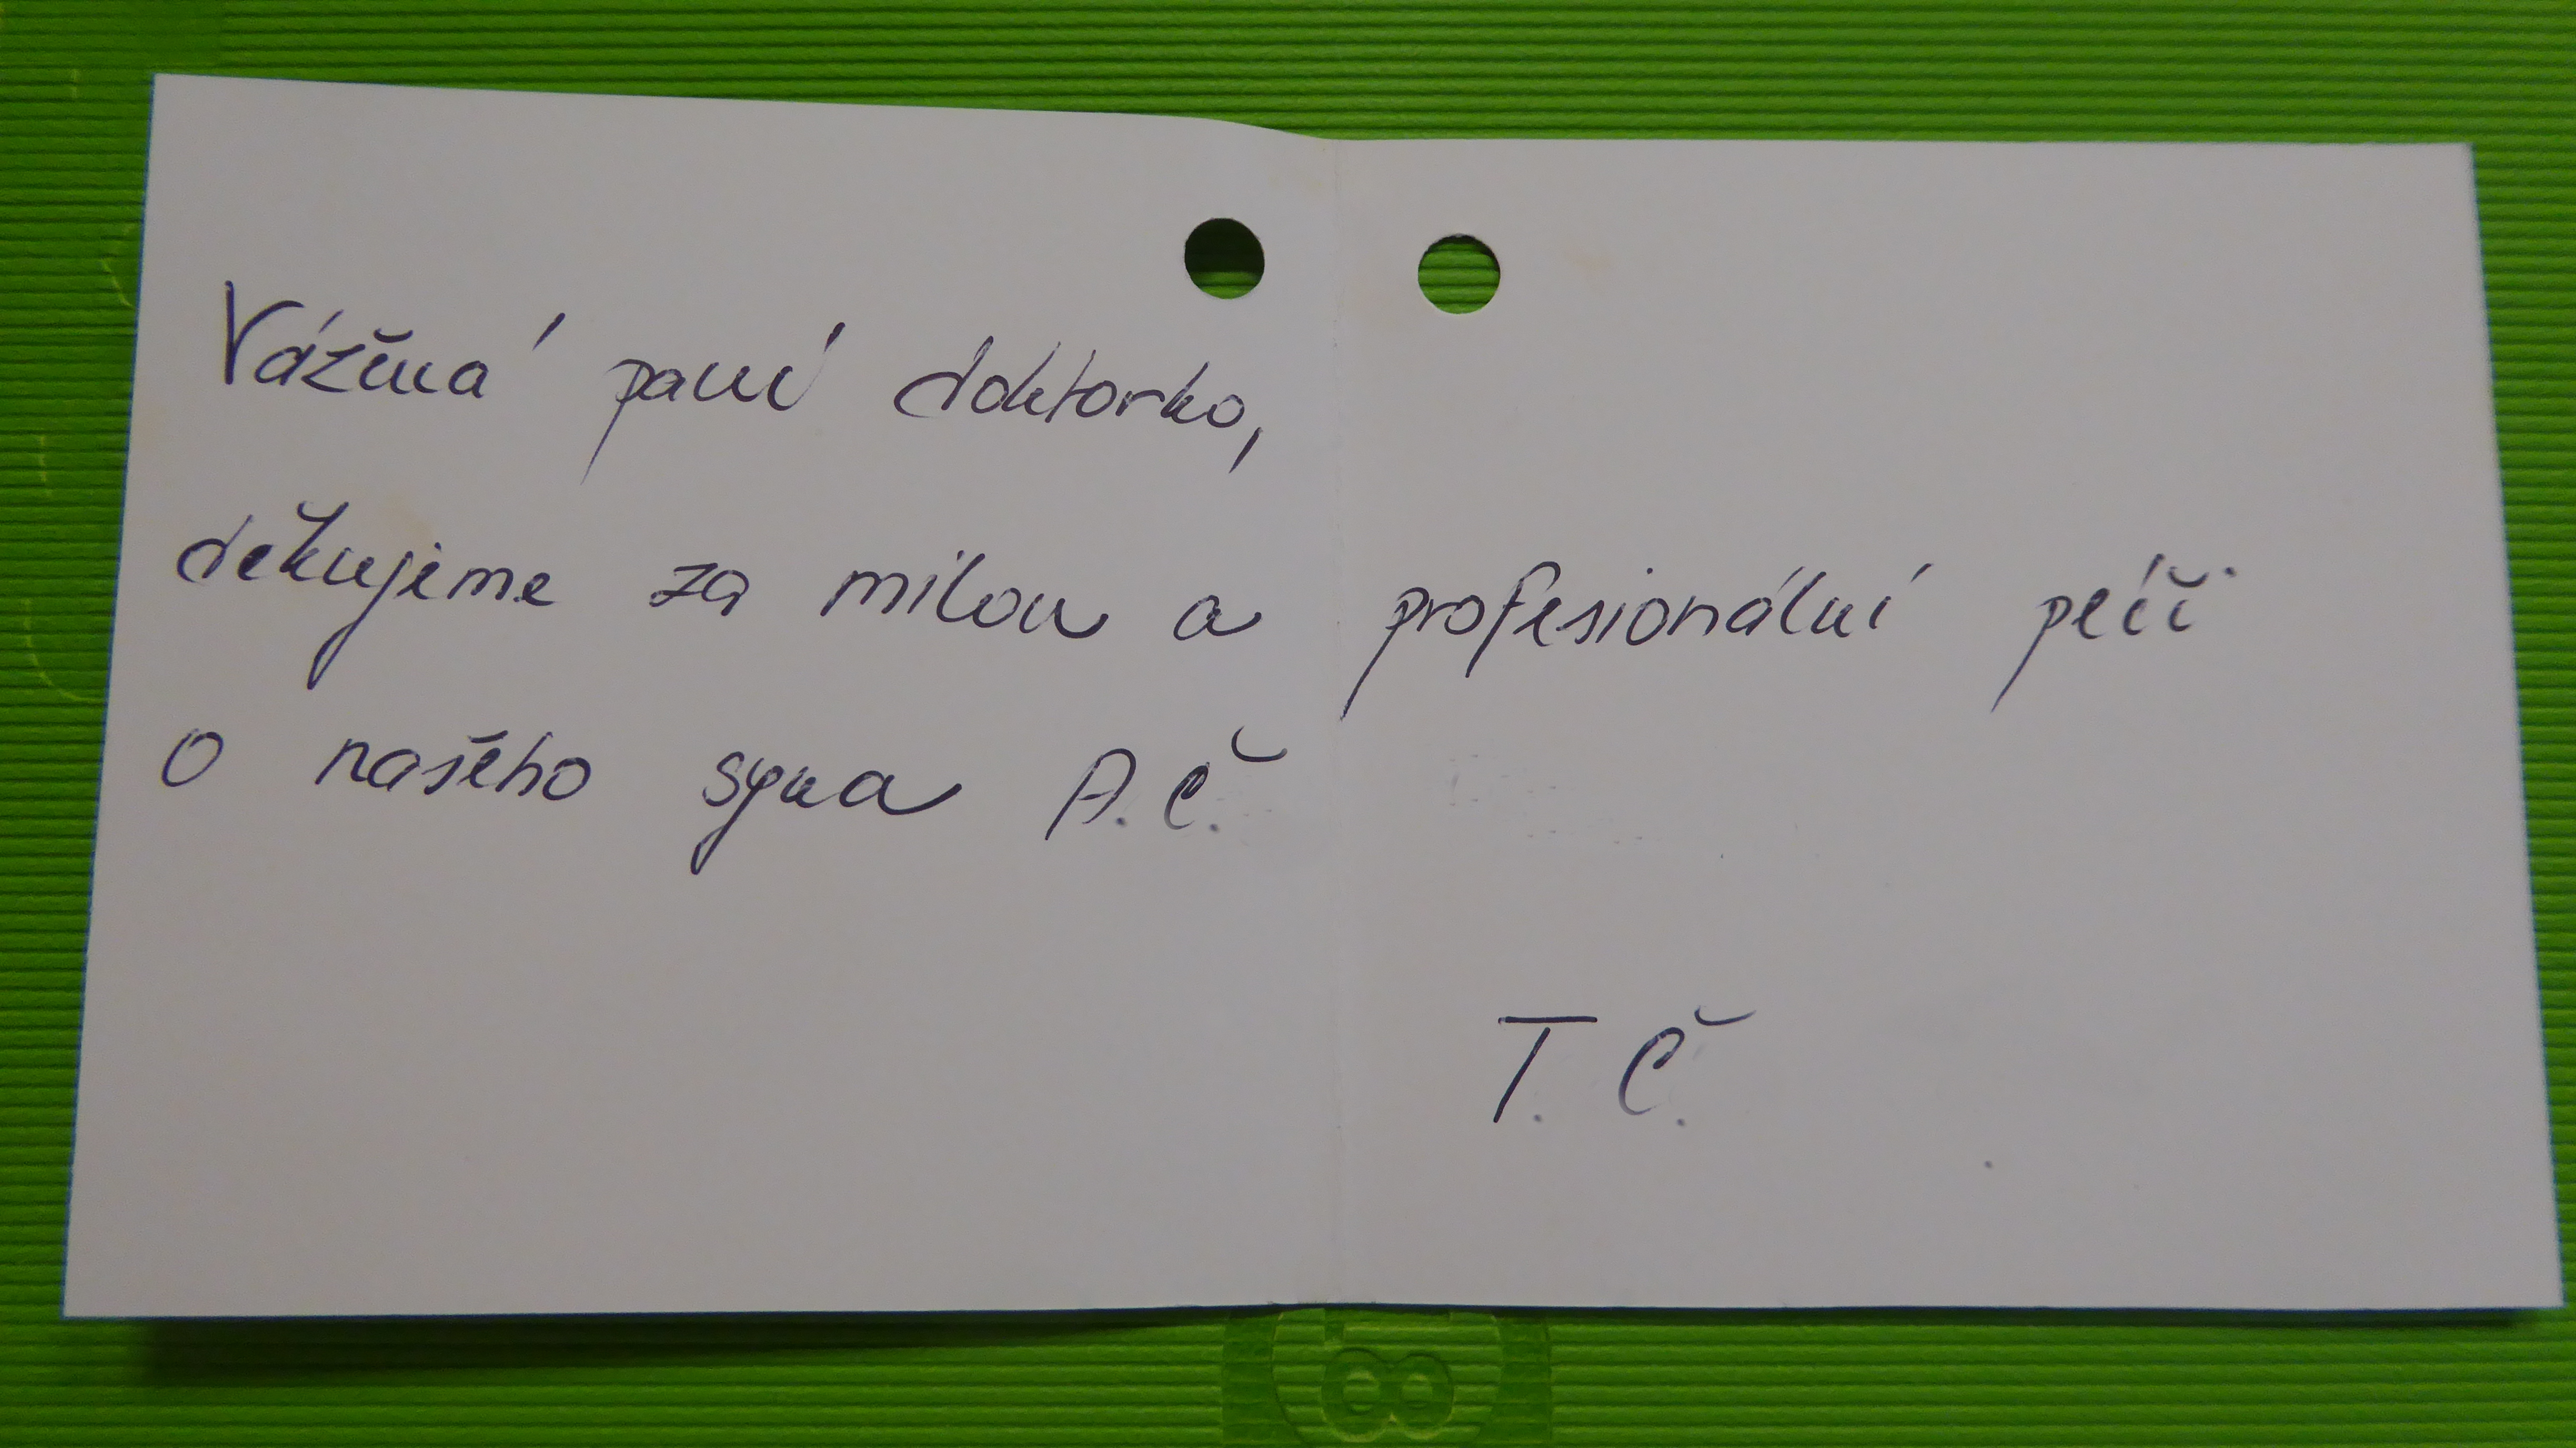 Vážená paní doktorko,
děkujeme za milou a profesionální péči
o našeho syna A.Č.
T. Č.